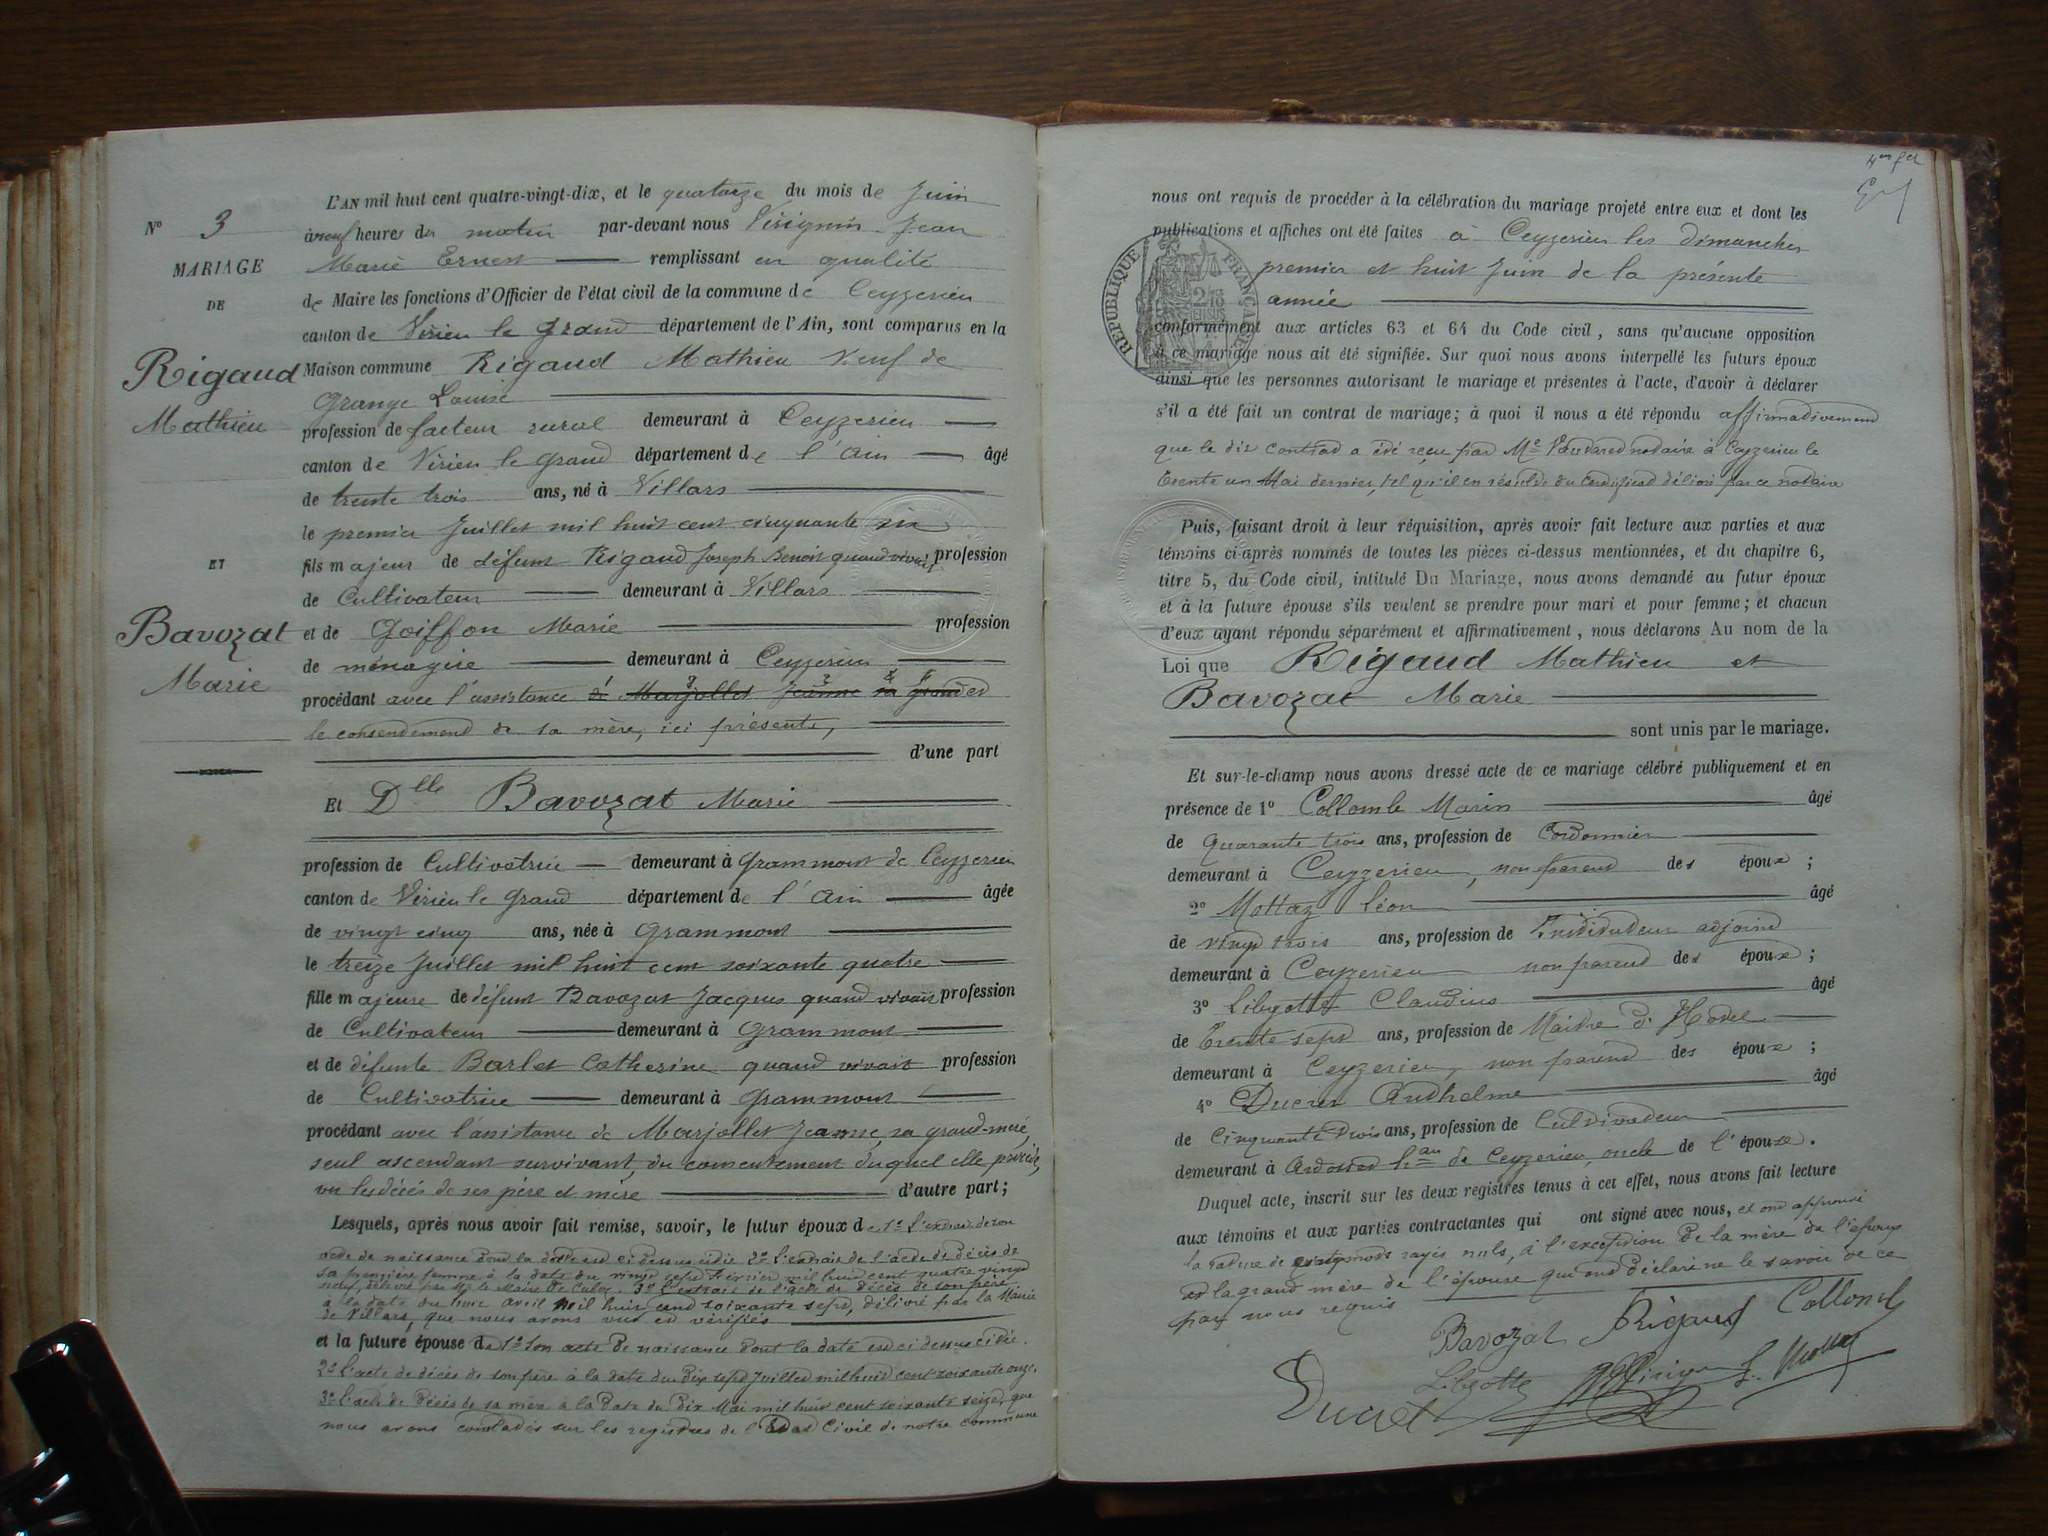 N° 3
MARIAGE
DE
Rigaud
Mathieu
ET
Bavozat
Marie
L'AN mil huit cent quatre-vingt-dix, et le quatorze du mois de Juin
à neuf heures du matin par-devant nous Virignin Jean
Marie Ernest remplissant en qualité
de Maire les fonctions d'Officier de l'état civil de la commune de Ceyzerieu
canton de Virieu le Grand département de l'Ain, sont comparus en la
Maison commune Rigaud Mathieu Veuf de
Grange Louise
profession de facteur rural demeurant à Ceyzerieu
canton de Virieu le Grand département de l'Ain âgé
de trente trois ans, né à Villars
le premier Juillet mil huit cent cinquante six
fils majeur de défunt Rigaud Joseph Benoit quand vivait profession
de Cultivateur demeurant à Villars
et de Goiffon Marie profession
de ménagère demeurant à Ceyzerieu
procédant avec l'assistance de Marjollet Jeanne sa grand et
le consentement de sa mère, ici présente,
d'une part
Et Dlle Bavozat Marie
profession de Cultivatrice demeurant à Grammont de Ceyzerieu
canton de Virieu le Grand département de l'Ain âgée
de vingt cinq ans, née à Grammont
le treize Juillet mil huit cent soixante quatre
fille majeure de défunt Bavozat Jacques quand vivait profession
de Cultivateur demeurant à Grammont
et de défunte Barlet Catherine quand vivait profession
de Cultivatrice demeurant à Grammont
procédant avec l'assistance de Marjollet Jeanne, sa grand-mère,
seul ascendant survivant, du consentement duquel elle procède,
vu les décés de ses père et mère d'autre part;
Lesquels, après nous avoir fait remise, savoir, le futur époux de 1° l'extrait de son
acte de naissance dont la date est ci dessus citée 2° l'extrait de l'acte de décès de
sa première femme à la date du vingt sept février mil huit cent quatre vingt
neuf, délivré par Mr le Maire de Culoz. 3° l'extrait de l'acte de décès de son père
à la date du onze avril mil huit cent soixante sept, délivré par la Mairie
de Villars, que nous avons vus et vérifiés
et la future épouse de 1° son acte de naissance dont la date est ci dessus citée.
2° l'acte de décès de son père à la date du dix sept Juillet mil huit cent soixante onze.
3° l'acte de décès de sa mère à la date du dix Mai mil huit cent soixante seize, que
nous avons constatés sur les registres de l'Etat Civil de notre commune
nous ont requis de procéder à la célébration du mariage projeté entre eux et dont les
publications et affiches ont été faites à Ceyzerieu les dimanches
premier et huit Juin de la présente
année
RÉPUBLIQUE FRANÇAISE
conformément aux articles 63 et 64 du Code civil, sans qu'aucune opposition
à ce mariage nous ait été signifiée. Sur quoi nous avons interpellé les futurs époux
ainsi que les personnes autorisant le mariage et présentes à l'acte, d'avoir à déclarer
s'il a été fait un contrat de mariage; à quoi il nous a été répondu affirmativement
que le dit contrat a été reçu par Me notaire à Ceyzerieu le
trente un Mai dernier, tel qu'il en résulte du certificat délivré par ce notaire
Puis, faisant droit à leur réquisition, après avoir fait lecture aux parties et aux
témoins ci-après nommés de toutes les pièces ci-dessus mentionnées, et du chapitre 6,
titre 5, du Code civil, intitulé Du Mariage, nous avons demandé au futur époux
et à la future épouse s'ils veulent se prendre pour mari et pour femme; et chacun
d'eux ayant répondu séparément et affirmativement, nous déclarons Au nom de la
Loi que Rigaud Mathieu et
Bavozat Marie
sont unis par le mariage.
Et sur-le-champ nous avons dressé acte de ce mariage célébré publiquement et en
présence de 1° Collomb Marin âgé
de Quarante trois ans, profession de Cordonnier
demeurant à Ceyzerieu, non parent des époux;
2° Mottaz Léon âgé
de vingt trois ans, profession de Instituteur adjoint
demeurant à Ceyzerieu non parent des époux;
3° Libgotte Claudius âgé
de trente sept ans, profession de Maître d'Hotel
demeurant à Ceyzerieu, non parent des époux;
4° Ducret Anthelme âgé
de Cinquante trois ans, profession de Cultivateur
demeurant à Ardosset hau de Ceyzerieu, oncle de l'épouse.
Duquel acte, inscrit sur les deux registres tenus à cet effet, nous avons fait lecture
aux témoins et aux parties contractantes qui ont signé avec nous, et ont approuvé
la rature de cinq mots rayés nuls, à l'exception de la mère de l'époux
et la grand mère de l'épouse qui ont déclaré ne le savoir de ce
par nous requis
Bavozat Rigaud Collomb
Libgotte Virignin L. Mottaz
Ducret